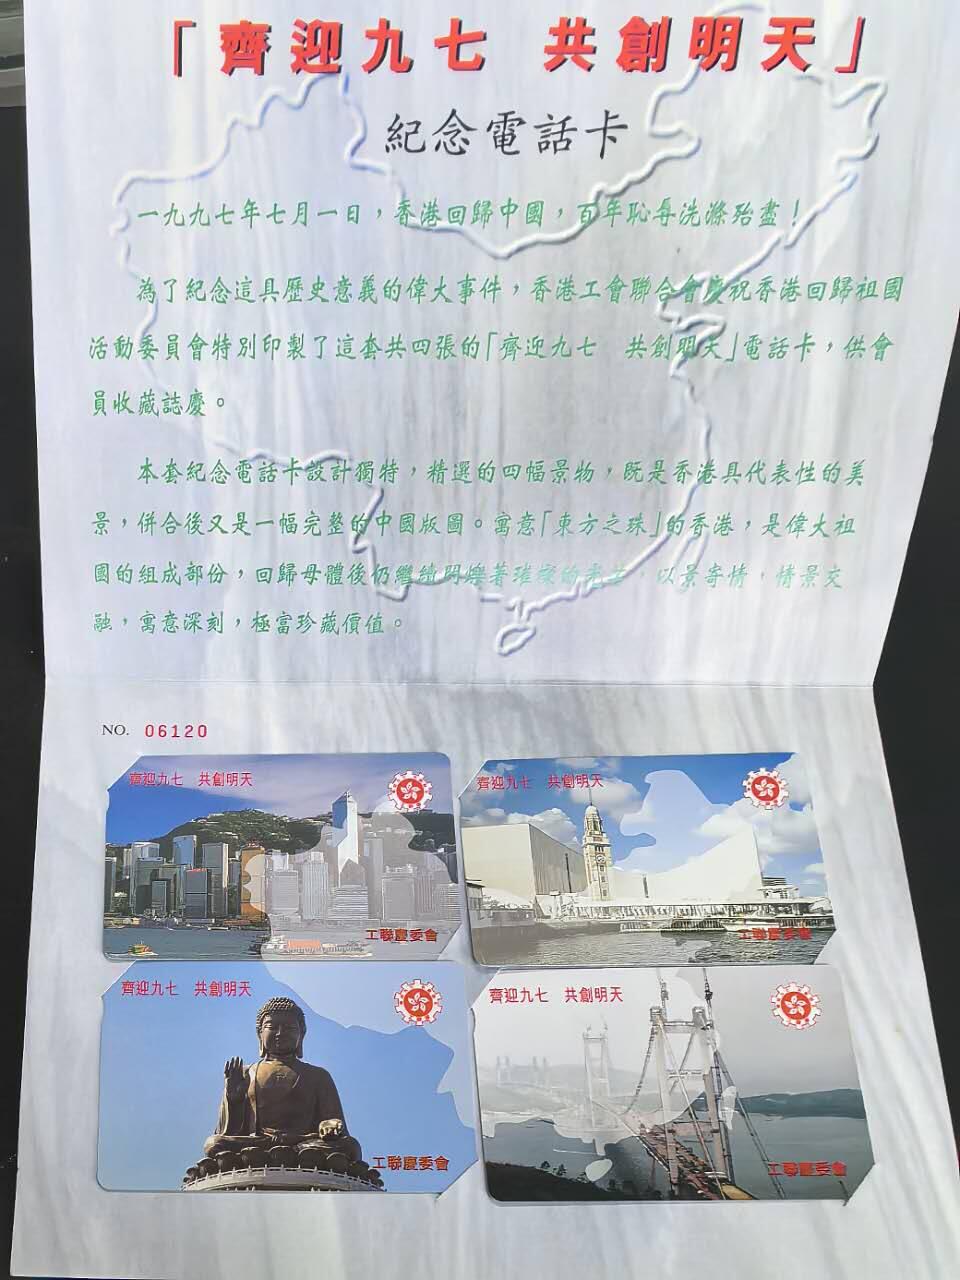 「齊迎九七 共創明天」
紀念電話卡
一九九七年七月一日，香港回歸中國，百年恥辱洗滌殆盡！
為了紀念這具歷史意義的偉大事件，香港工會聯合會慶祝香港回歸祖國
活動委員會特別印製了這套共四張的「齊迎九七 共創明天」電話卡，供會
員收藏誌慶。
本套紀念電話卡設計獨特，精選的四幅景物，既是香港具代表性的美
景，併合後又是一幅完整的中國版圖。寓意「東方之珠」的香港，是偉大祖
國的組成部份，回歸母體後仍繼續閃爍著璀璨的光芒，以景寄情，情景交
融，寓意深刻，極富珍藏價值。
NO. 06120
齊迎九七 共創明天
工聯慶委會
齊迎九七 共創明天
工聯慶委會
齊迎九七 共創明天
工聯慶委會
齊迎九七 共創明天
工聯慶委會